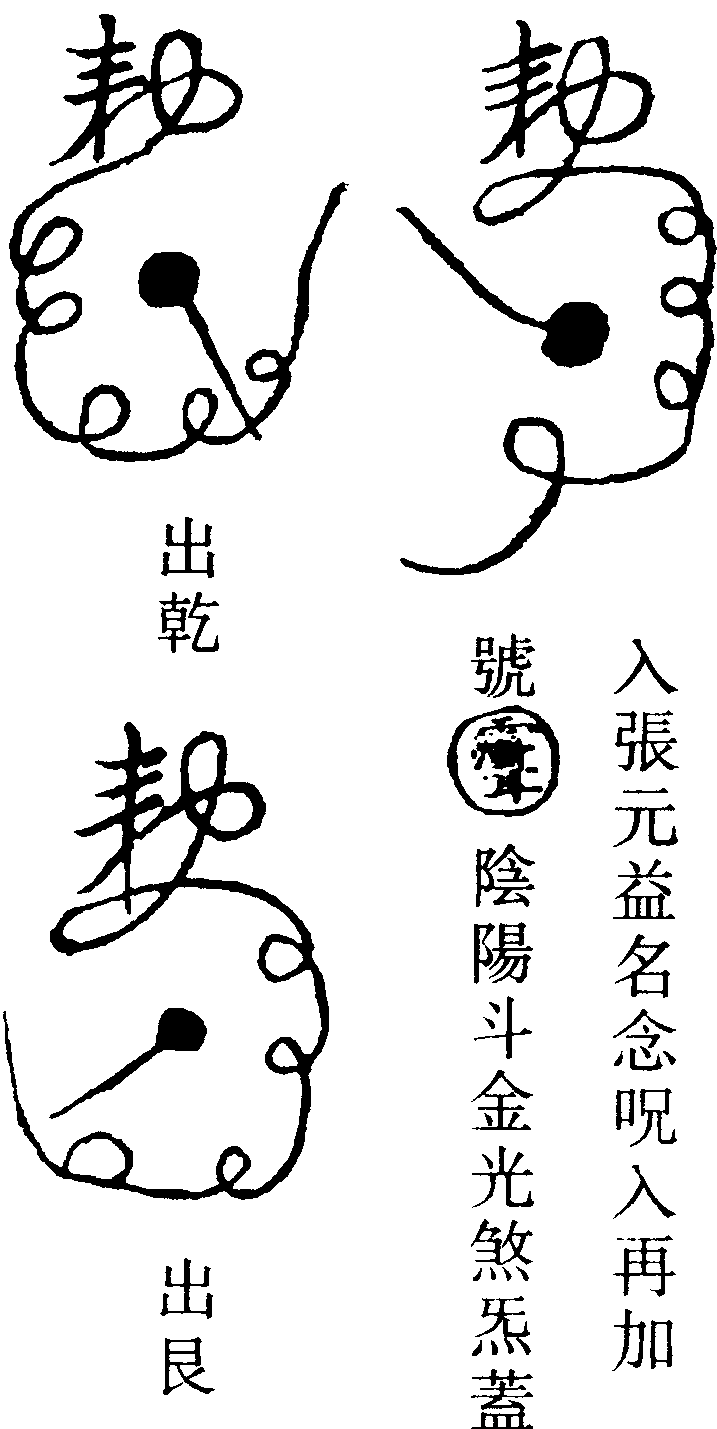 入張元益名念呪入再加
號陰陽斗金光煞炁蓋
出乾
出艮